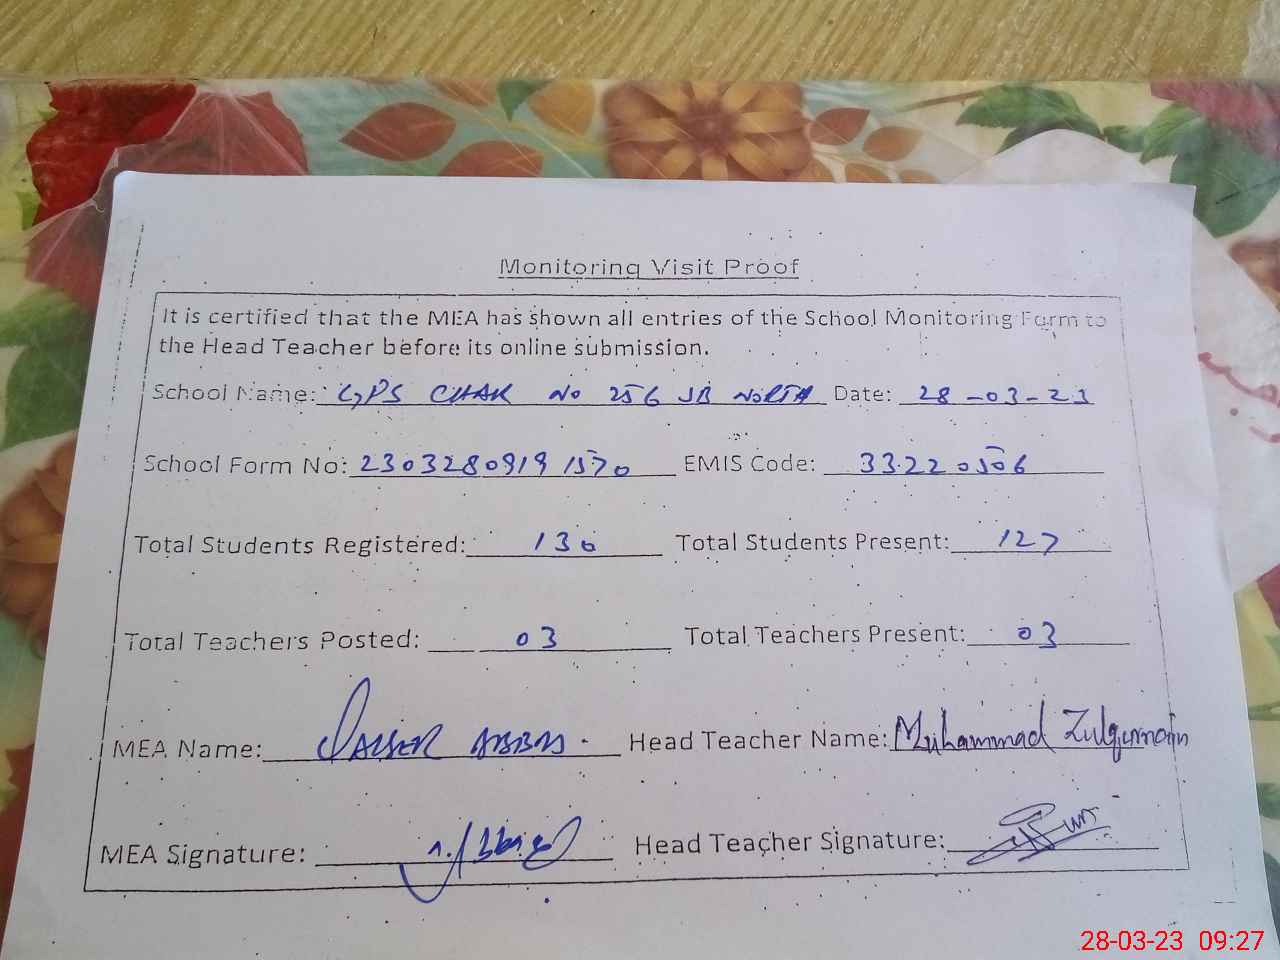 Monitoring Visit Proof
It is certified that the MEA has shown all entries of the School Monitoring Form to
the Head Teacher before its online submission.
School Name: GPS CHAK No 256 JB NORTH Date: 28-03-23
School Form No: 2303280919 1570 EMIS Code: 33220506
Total Students Registered: 130 Total Students Present: 127
Total Teachers Posted: 03 Total Teachers Present: 03
MEA Name: QAISER ABBAS. Head Teacher Name: Muhammad Zulqurnain
MEA Signature: Head Teacher Signature:
28-03-23 09:27